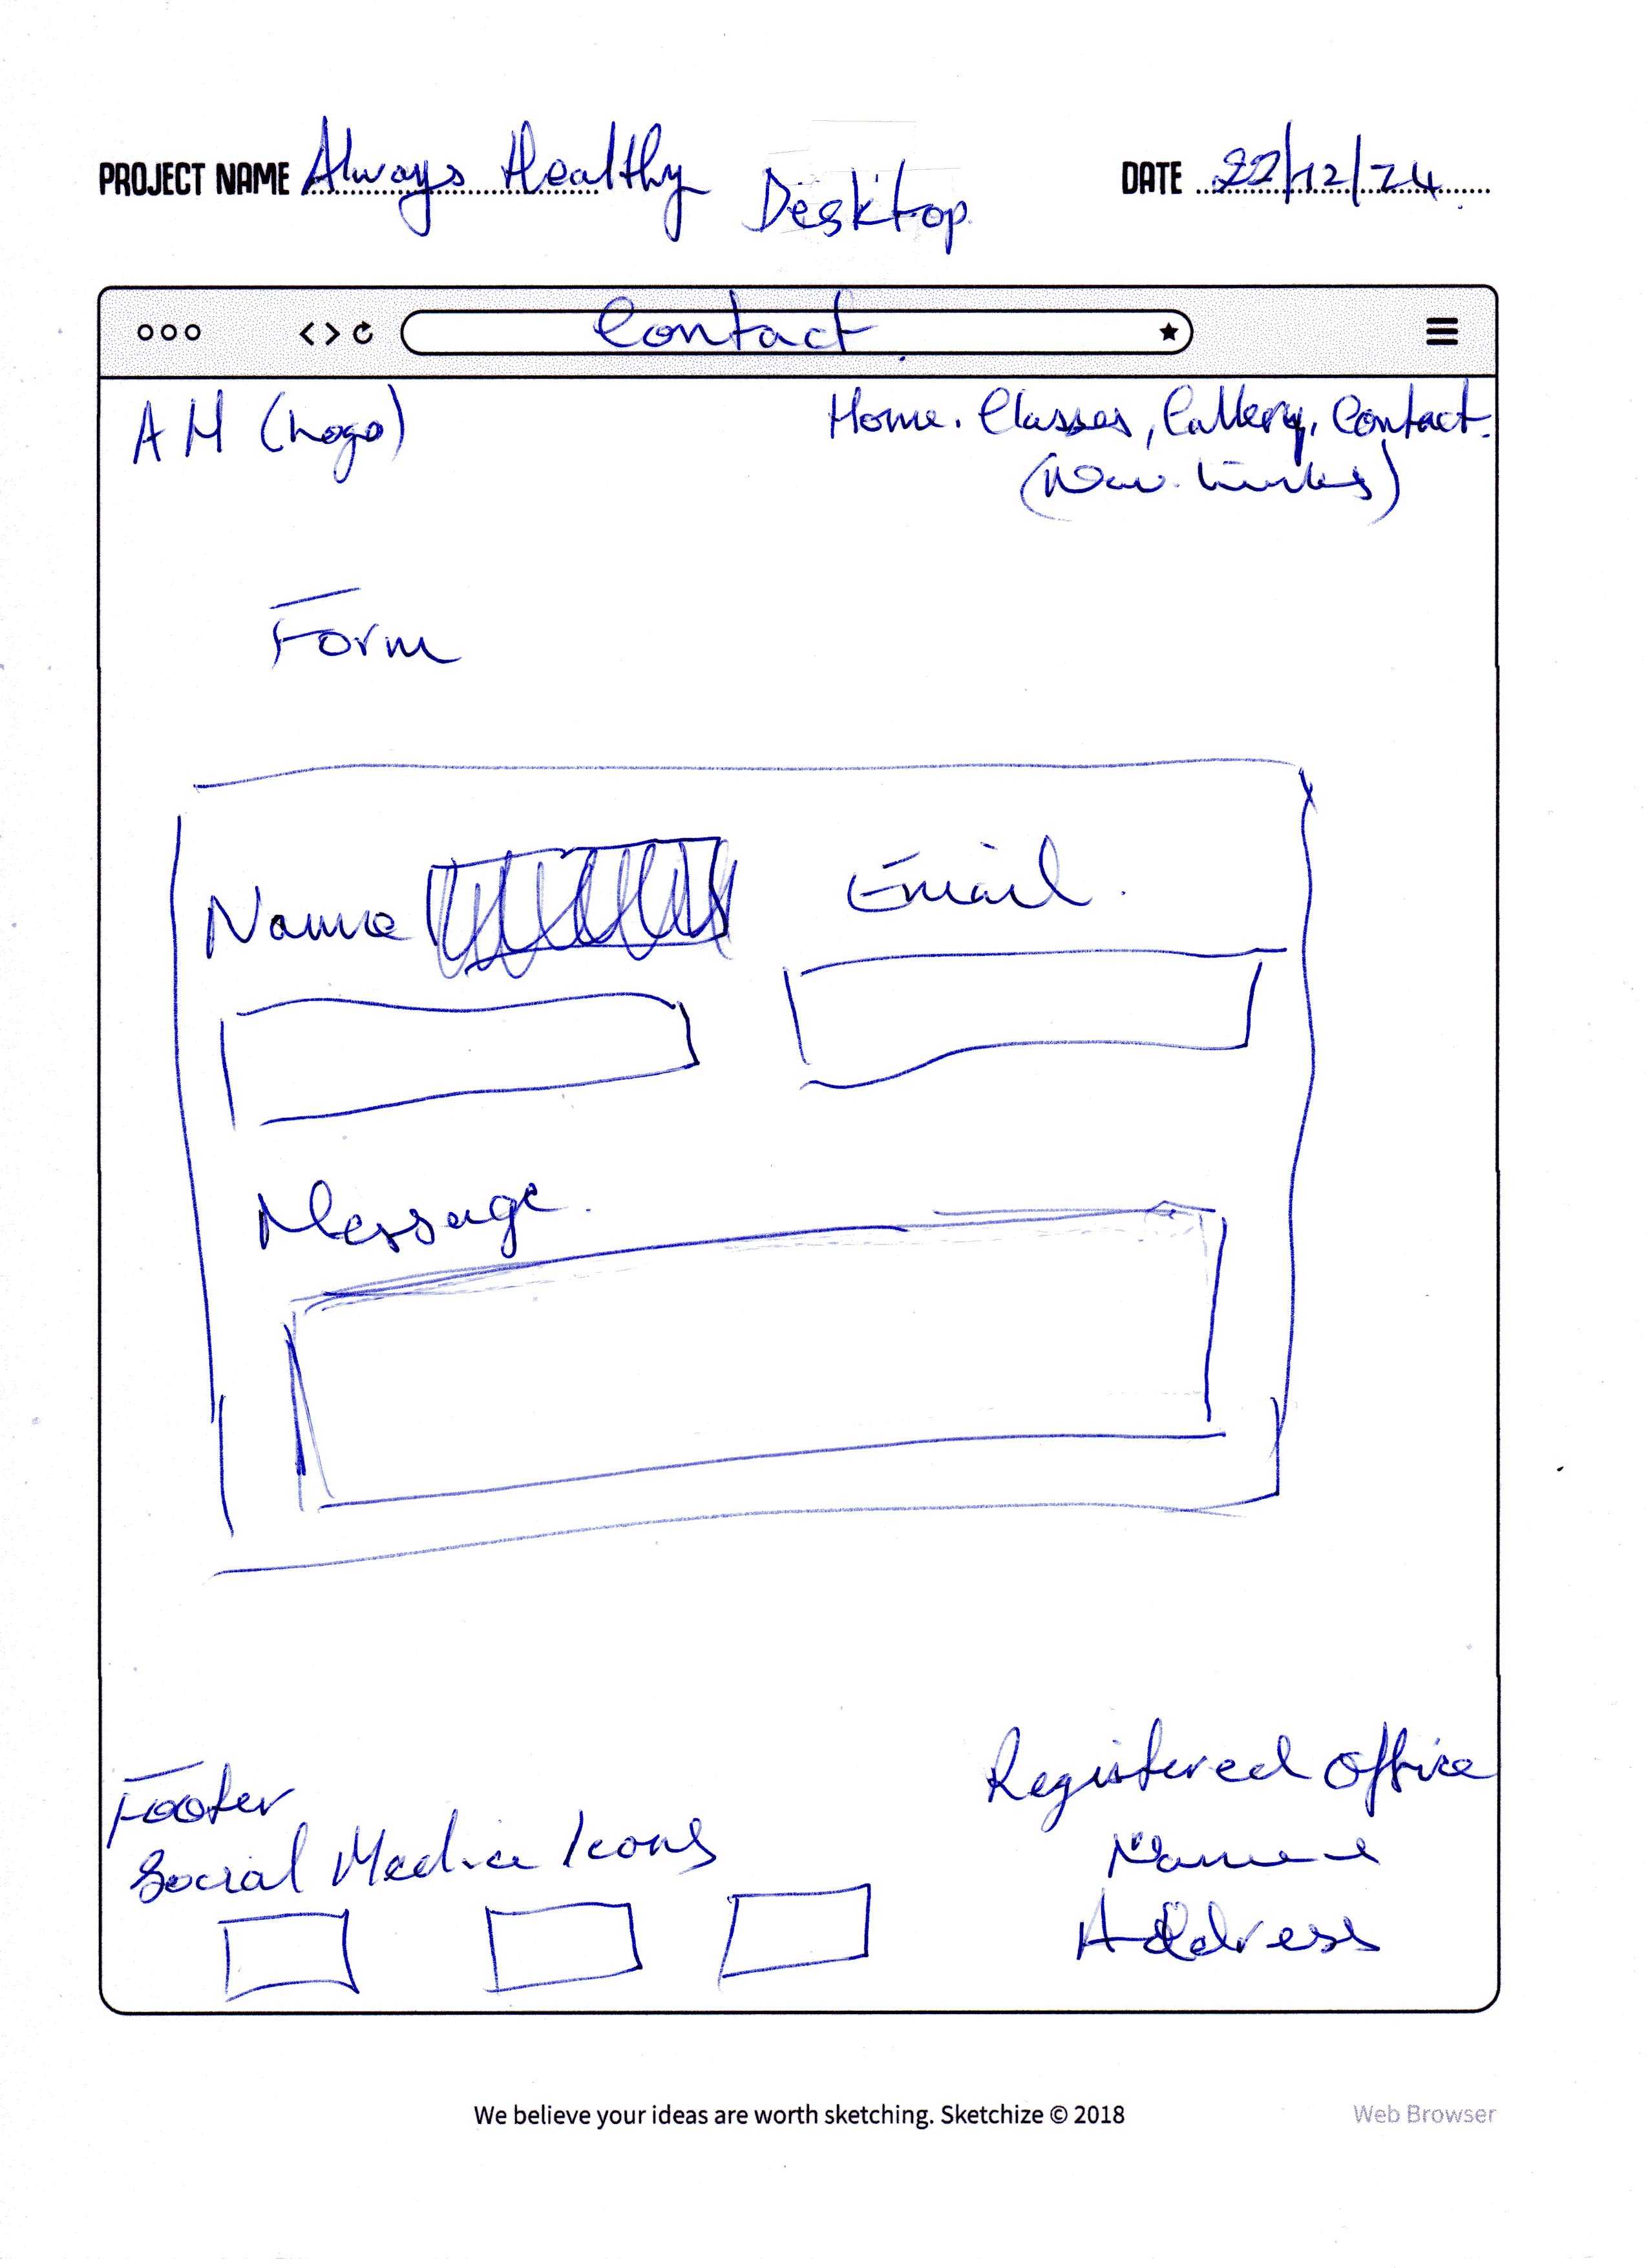 PROJECT NAME Always Healthy Desktop DATE 22/12/24
Contact
AH (Logo) Home. Classes, Gallery, Contact.
(Nav. Links)
Form
Name Email.
Message.
Footer Registered Office
Social Media Icons Name
Address
We believe your ideas are worth sketching. Sketchize © 2018 Web Browser